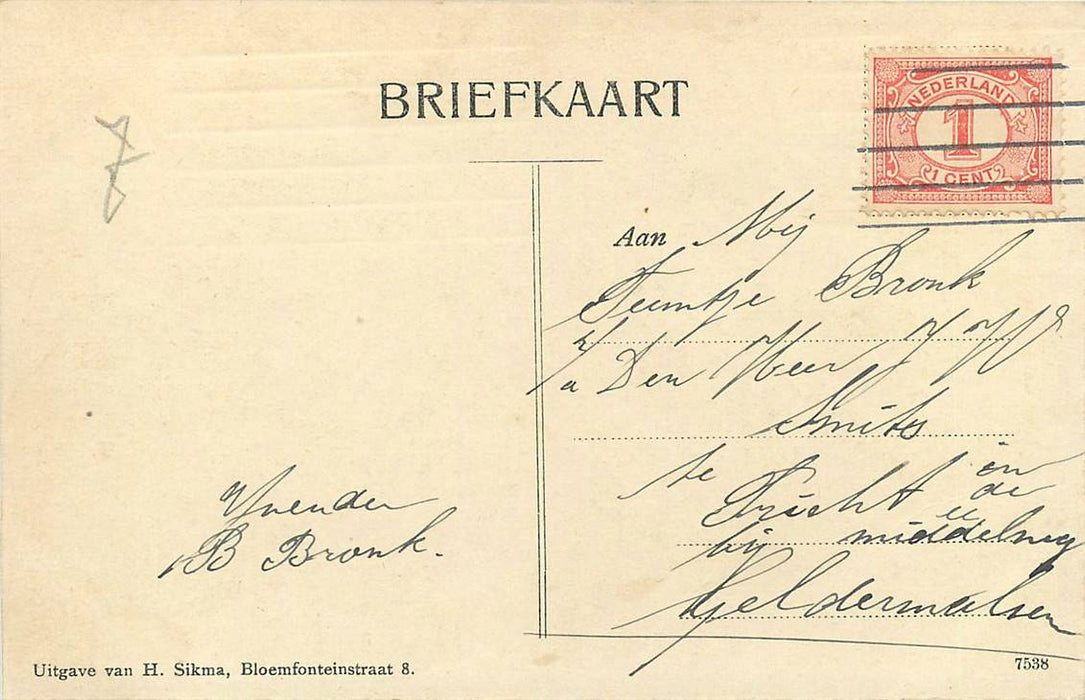 BRIEFKAART
7
NEDERLAND
1
1 CENT
Aan Mej
Teuntje Bronk
p/a Den Heer J W
Smits
te Tricht in
de
bij middelweg
Geldermalsen
Vriendin
B Bronk.
Uitgave van H. Sikma, Bloemfonteinstraat 8.
7538